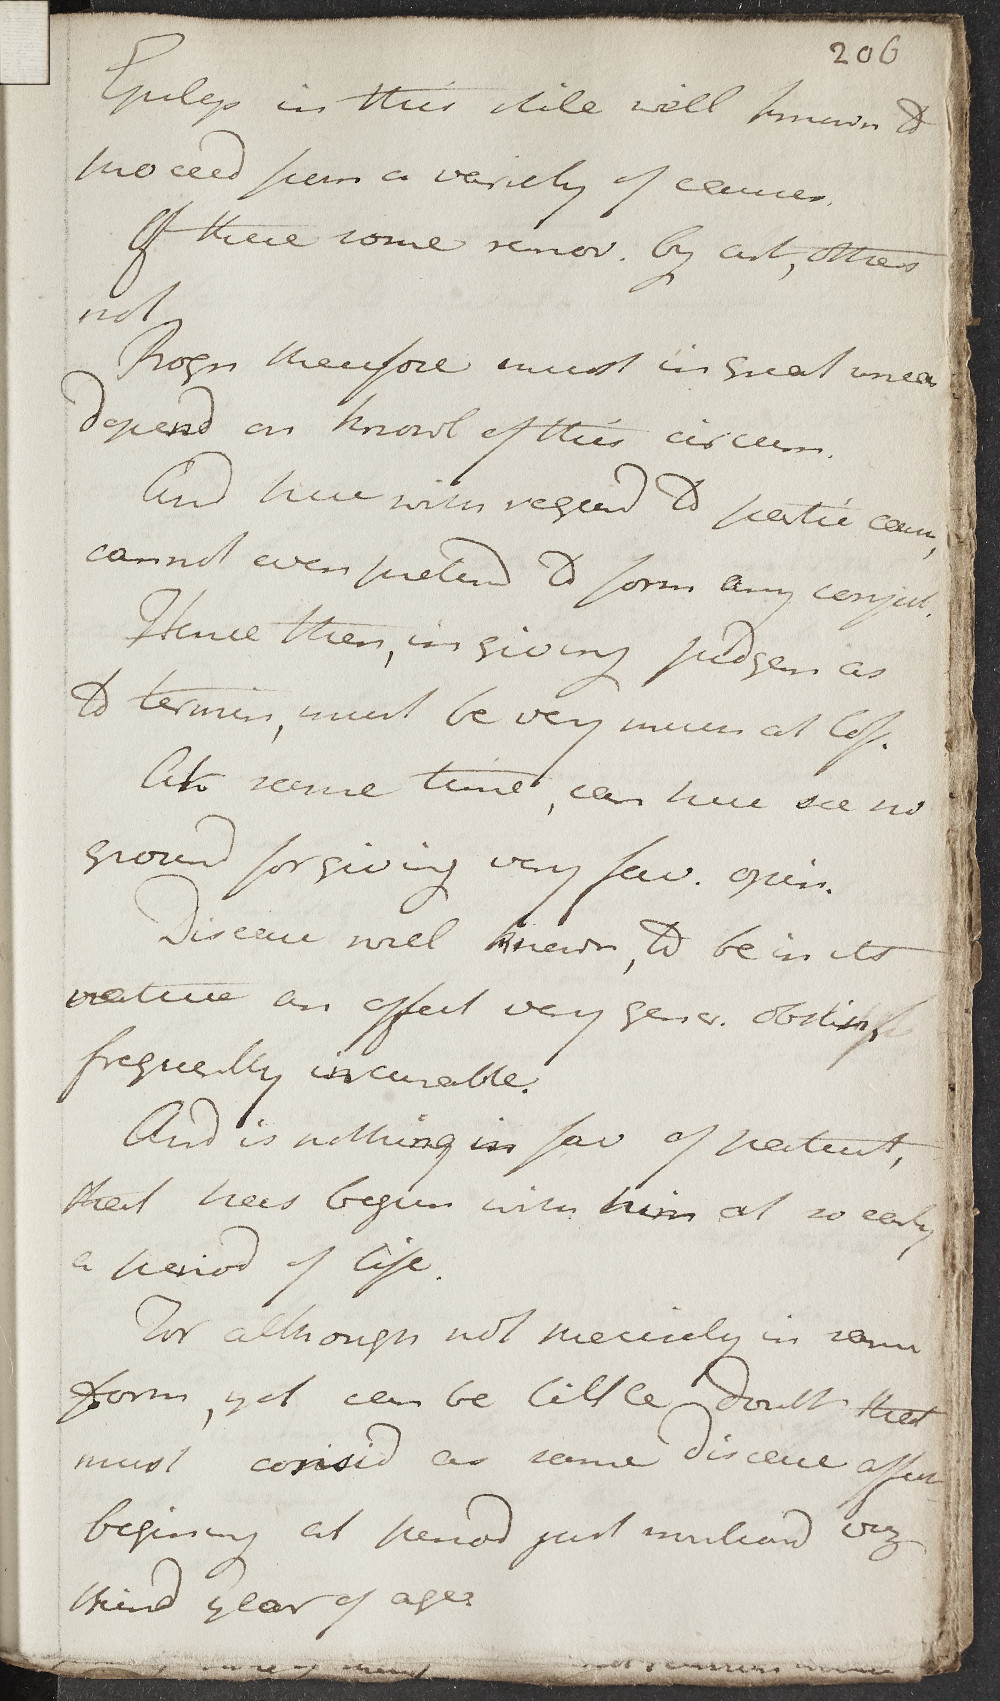 206
Epileps in this stile well known to
proceed from a variety of causes.
Of these some remov. by art, others
not
Progn therefore must in great mea
depend on knowl of this circum.
And here with regard to partic caus,
cannot even pretend to form any conject.
Hence then, in giving judgem as
to termin, must be very much at loss.
At same time, can here see no
ground for giving very fav. opin.
Disease well known, to be in its
nature an affect very gener. obstin,
frequently incurable.
And is nothing in fav of patient,
that has begun with him at so early
a period of life.
For although not precisely in same
form, yet can be little doubt that
must consid as same disease affect
beginning at period just mentiond viz
third year of age